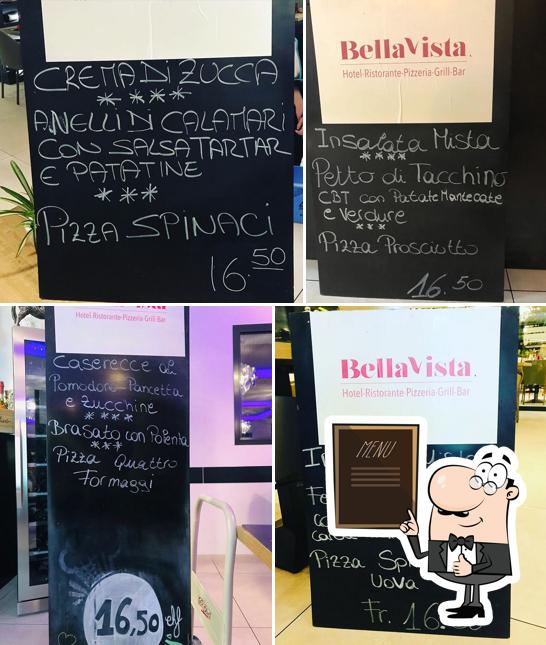 CREMA DI ZUCCA
****
ANELLI DI CALAMARI
CON SALSA TARTAR
E PATATINE
***
PIZZA SPINACI
16.50
BellaVista.
Hotel·Ristorante·Pizzeria·Grill·Bar
Insalata Mista
****
Petto di Tacchino
CBT con Patate Mantecate
e Verdure
***
Pizza Prosciutto
16.50
Hotel Ristorante·Pizzeria·Grill·Bar
Caserecce al
Pomodoro-Pancetta
e Zucchine
****
Brasato con Polenta
***
Pizza Quattro
Formaggi
16,50
BellaVista.
Hotel·Ristorante Pizzeria·Grill·Bar
MENU
Pizza
Uova
Fr. 16.